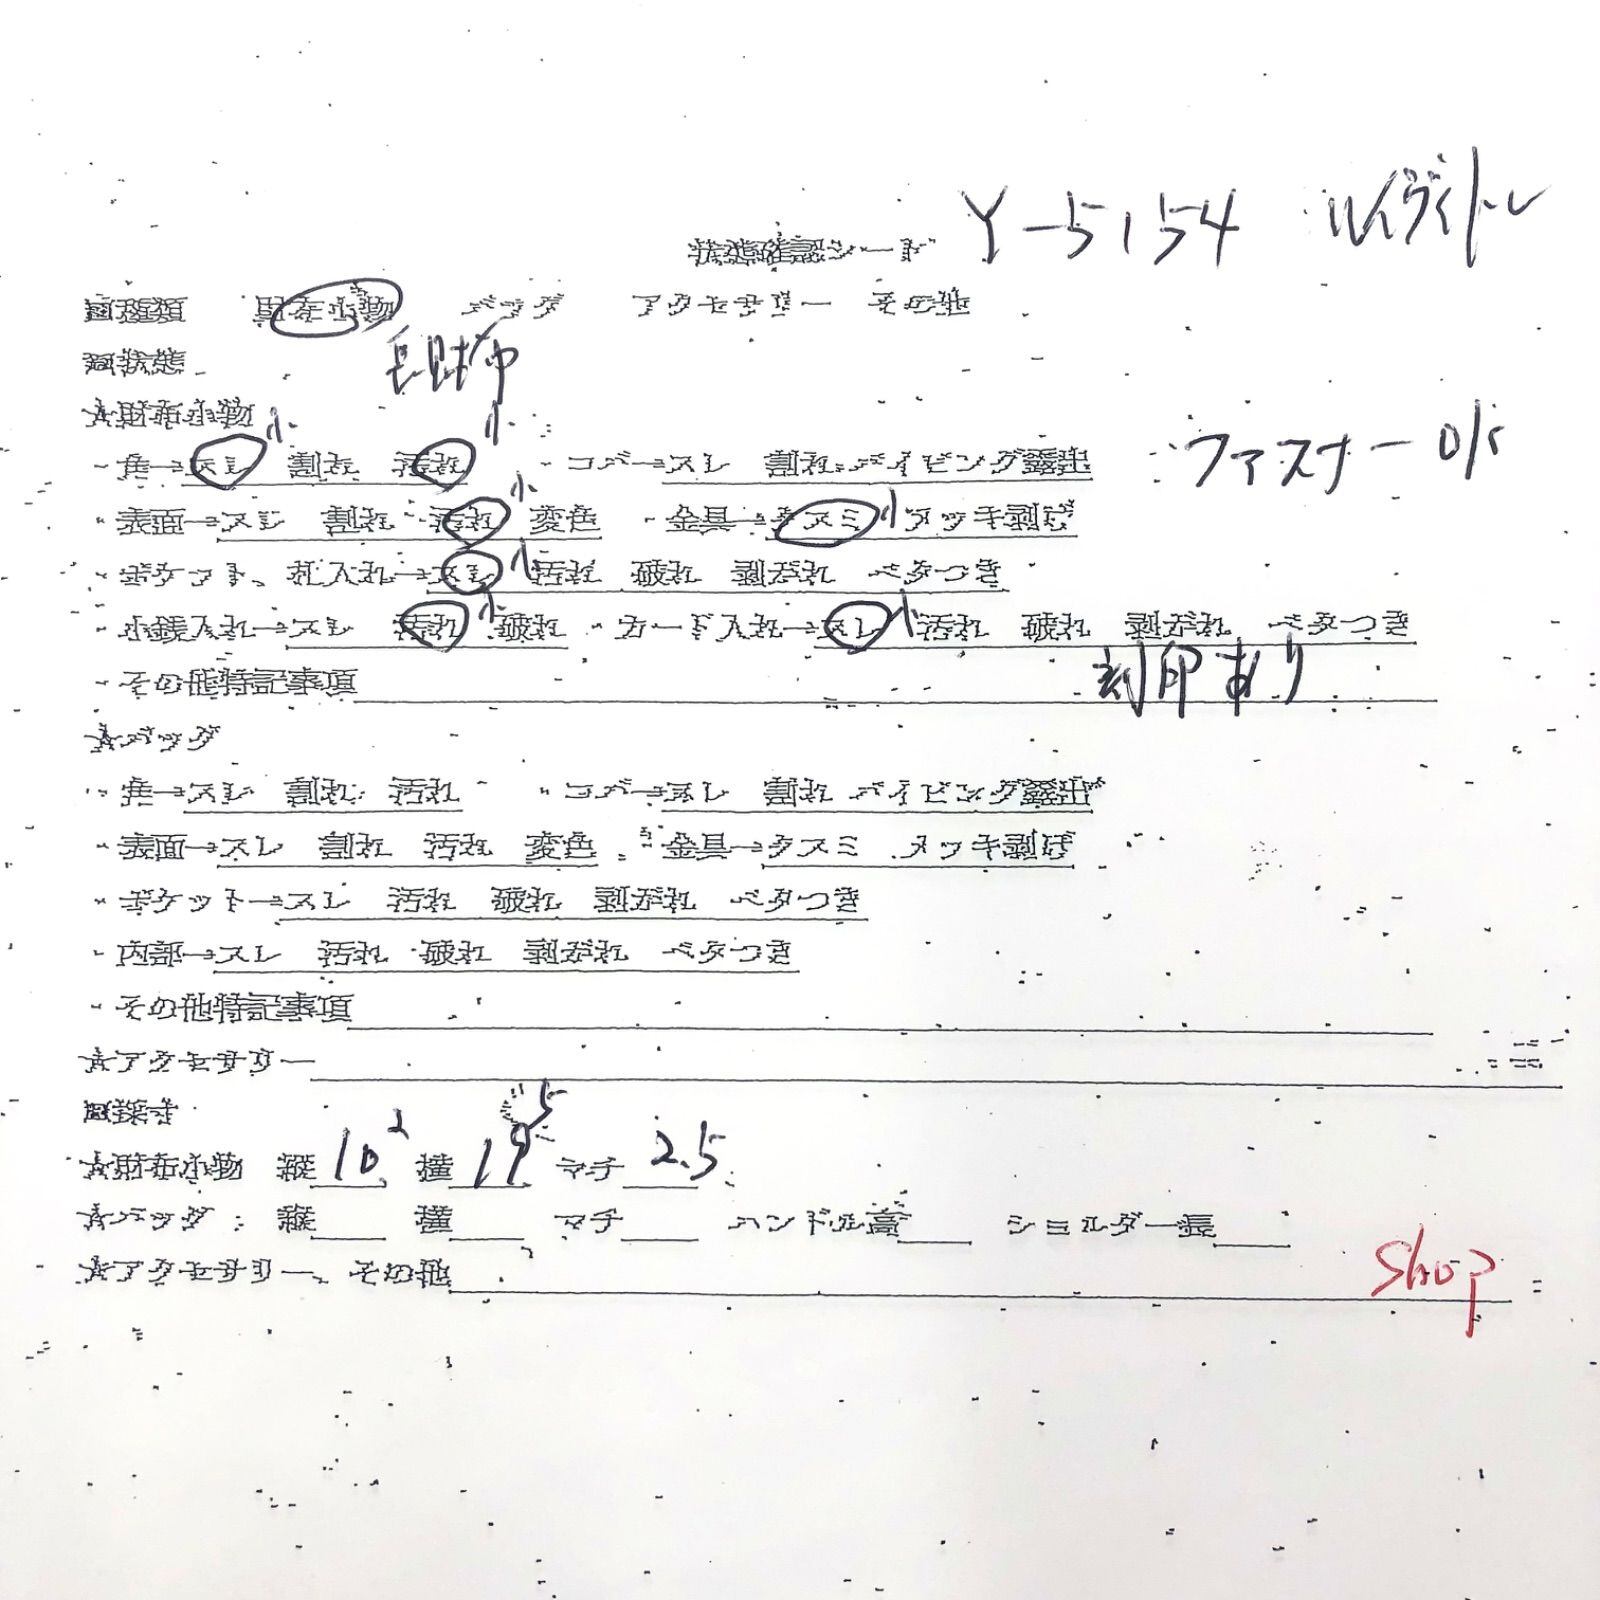 状態確認シート Y-5154 ルイヴィトン
□種類 財布小物 バッグ アクセサリー その他
□状態 長財布
☆財布小物
・角→スレ小 割れ 汚れ小 ・コバ→スレ 割れ パイピング露出 ファスナー
・表面→スレ 割れ 汚れ小 変色 ・金具→クスミ小 メッキ剥げ
・ポケット、札入れ→スレ小 汚れ 破れ 剥がれ ベタつき
・小銭入れ→スレ 汚れ小 破れ ・カード入れ→スレ小 汚れ 破れ 剥がれ ベタつき
・その他特記事項 刻印あり
☆バッグ
・角→スレ 割れ 汚れ ・コバ→スレ 割れ パイピング露出
・表面→スレ 割れ 汚れ 変色 ・金具→クスミ メッキ剥げ
・ポケット→スレ 汚れ 破れ 剥がれ ベタつき
・内部→スレ 汚れ 破れ 剥がれ ベタつき
・その他特記事項
☆アクセサリー
□採寸
☆財布小物 縦10² 横19⁵ マチ2.5
☆バッグ 縦 横 マチ ハンドル高 ショルダー長
☆アクセサリー、その他 Shop